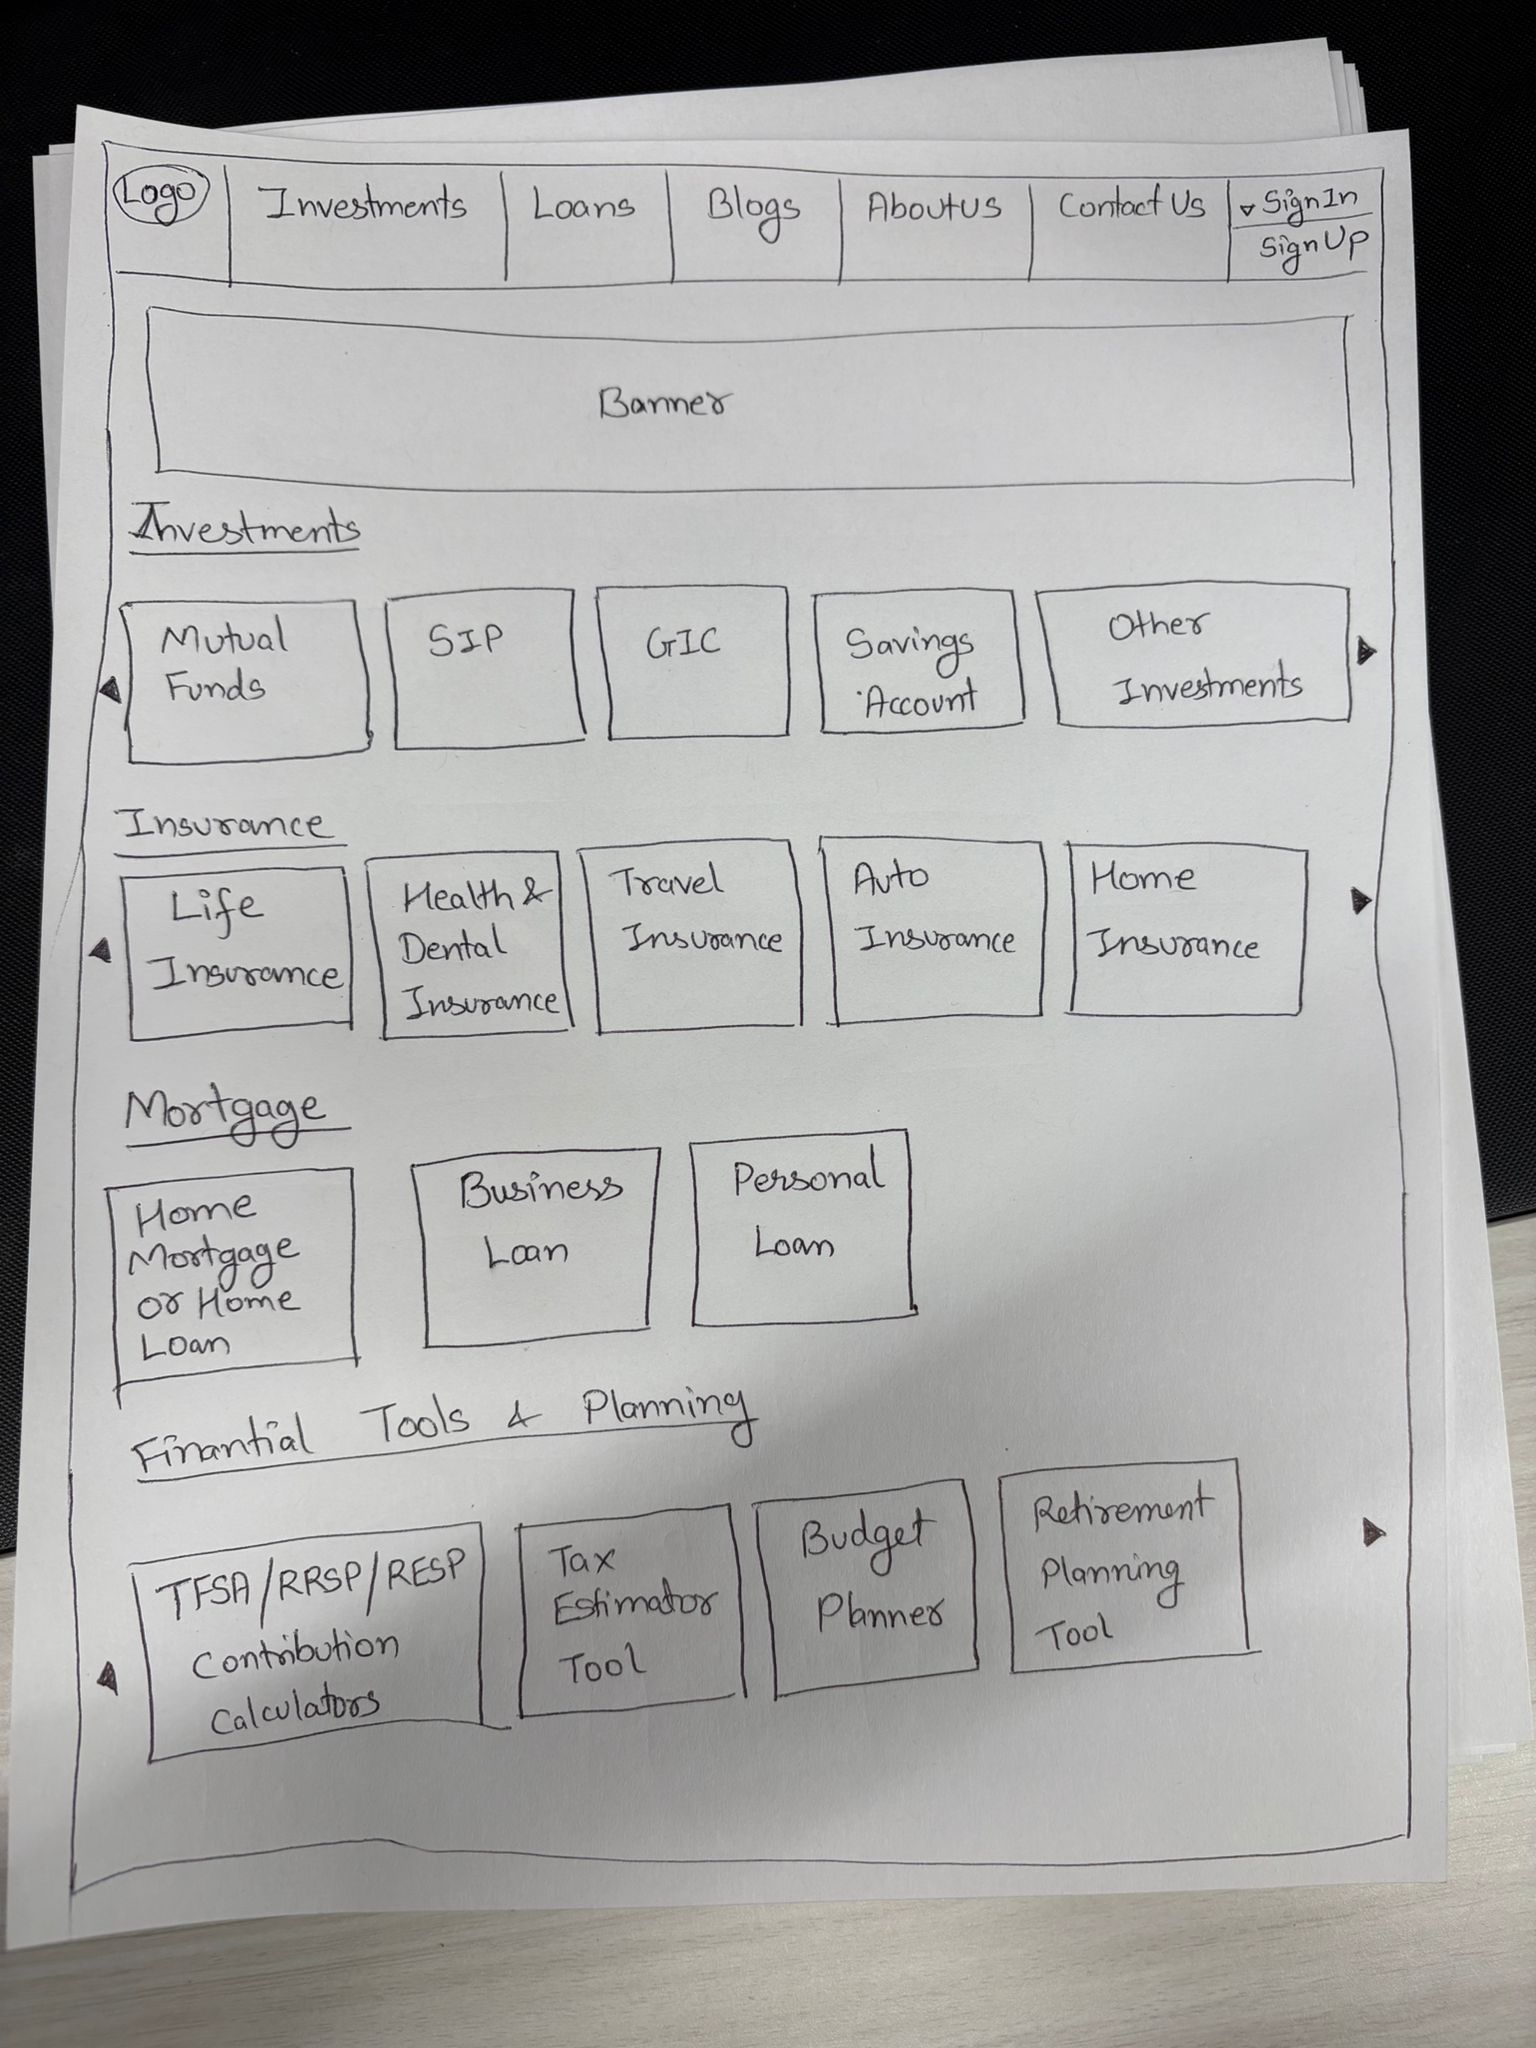 Logo
Investments
Loans
Blogs
About us
Contact Us
Sign In
Sign Up
Banner
Investments
Mutual
Funds
SIP
GIC
Savings
Account
Other
Investments
Insurance
Life
Insurance
Health &
Dental
Insurance
Travel
Insurance
Auto
Insurance
Home
Insurance
Mortgage
Home
Mortgage
or Home
Loan
Business
Loan
Personal
Loan
Finantial Tools & Planning
TFSA/RRSP/RESP
Contribution
Calculators
Tax
Estimator
Tool
Budget
Planner
Retirement
Planning
Tool